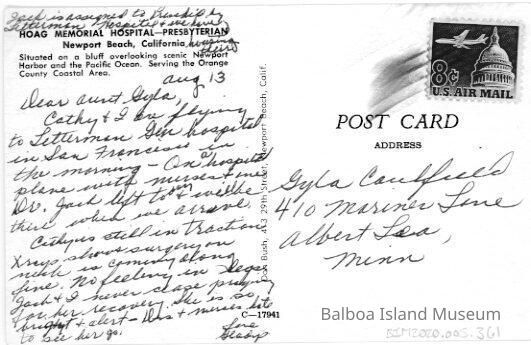 Jack is assigned to Presidio &
Letterman Hospital & we have
housing
there
HOAG MEMORIAL HOSPITAL—PRESBYTERIAN
Newport Beach, California
Situated on a bluff overlooking scenic Newport
Harbor and the Pacific Ocean. Serving the Orange
County Coastal Area.
Aug 13
Dear Aunt Gyla,
Cathy & I are flying
to Letterman Gen hospital
in San Francisco in
the morning — On a hospital
plane with nurses & one
Dr. Jack left today & will be
there when we arrive.
Cathy is still in traction
Xrays show surgery on
neck is coming along
fine. No feeling in legs
Jack & I never cease praying
for her recovery. She is so
bright & alert — Drs & nurses hate
to see her go.
Love
Gladys
Bush, 413 29th Street, Newport Beach, Calif.
C—17941
8¢
U.S. AIR MAIL
POST CARD
ADDRESS
Gyla Caulfield
410 Mariner Lane
Albert Lea,
Minn
Balboa Island Museum
BIM2020.005.361